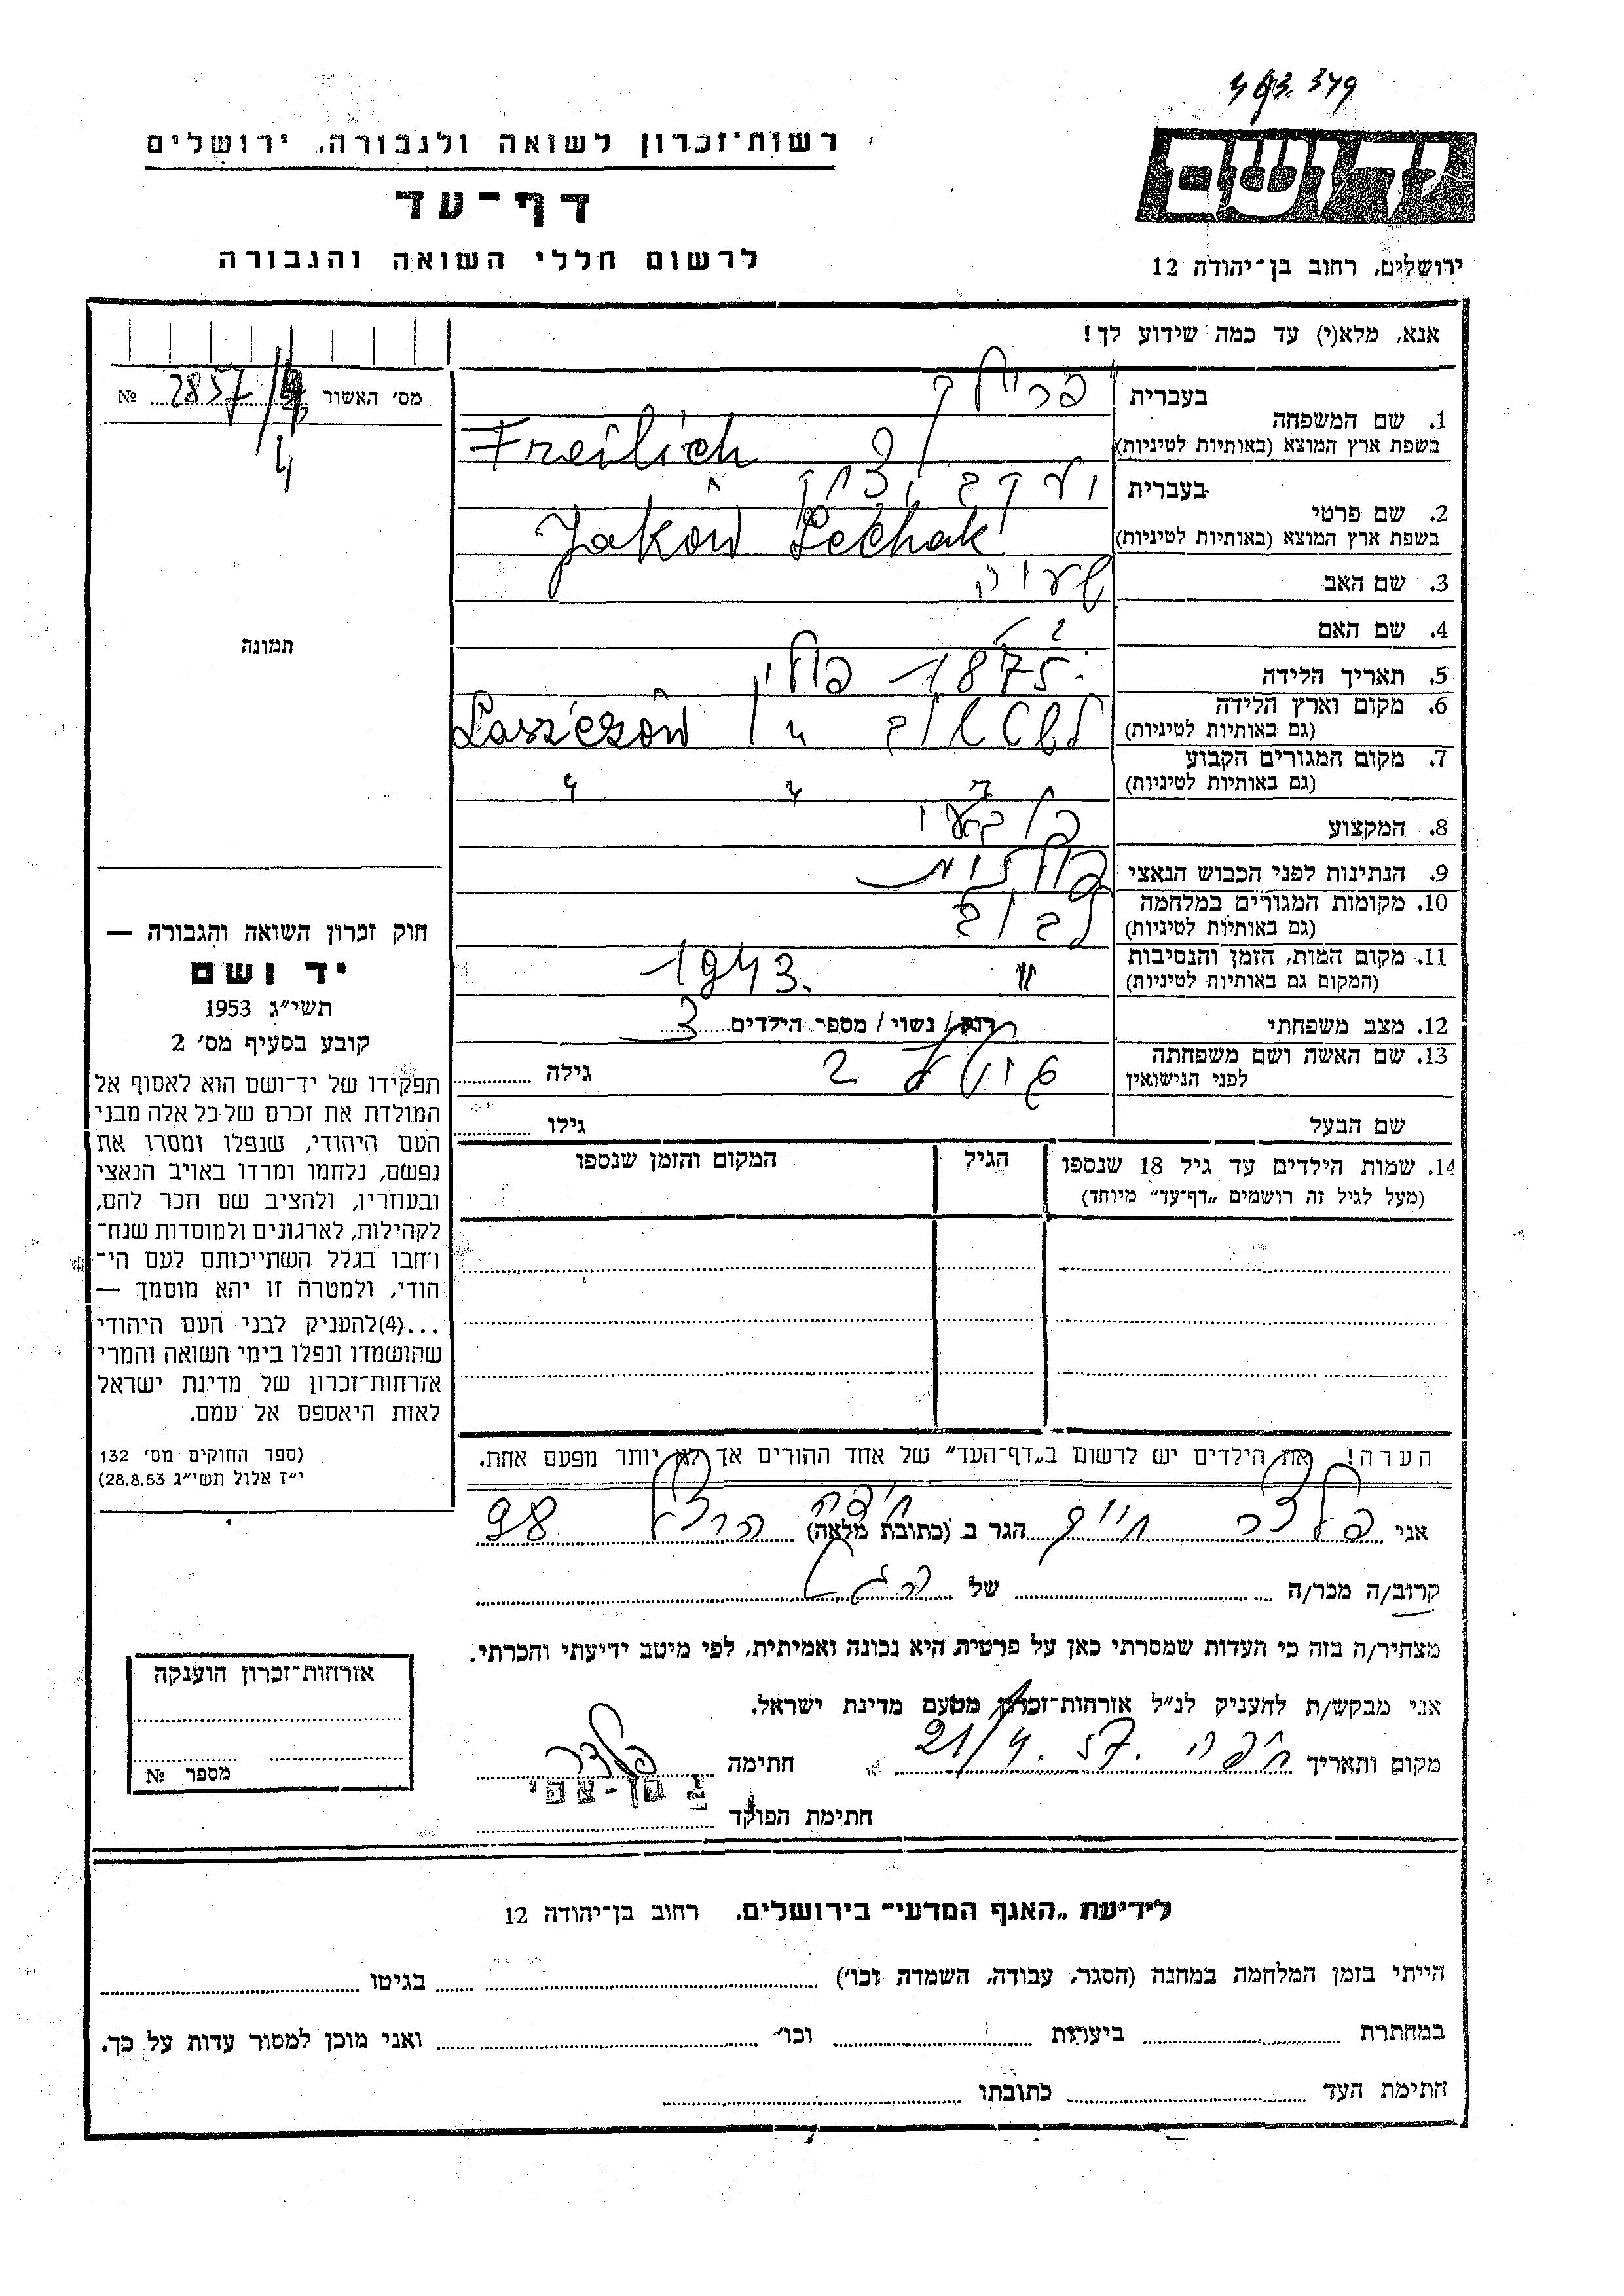 463.379
רשות־זכרון לשואה ולגבורה, ירושלים
דף־עד
לרשום חללי השואה והגבורה
יד ושם
ירושלים, רחוב בן־יהודה 12
אנא, מלא(י) עד כמה שידוע לך!
מס׳ האשור 2857/4 №
בעברית פריילך
1. שם המשפחה
בשפת ארץ המוצא (באותיות לטיניות) Freilich
בעברית יעקב יצחק
2. שם פרטי
בשפת ארץ המוצא (באותיות לטיניות) Jaków
3. שם האב
4. שם האם
תמונה
5. תאריך הלידה 1875 פולין
6. מקום וארץ הלידה
(גם באותיות לטיניות) Laszczów
7. מקום המגורים הקבוע
(גם באותיות לטיניות) " " "
8. המקצוע
9. הנתינות לפני הכבוש הנאצי פולנית
10. מקומות המגורים במלחמה
(גם באותיות לטיניות)
11. מקום המות, הזמן והנסיבות
(המקום גם באותיות לטיניות) " 1943.
12. מצב משפחתי רווק / נשוי / מספר הילדים 3
13. שם האשה ושם משפחתה
לפני הנישואין גילה
שם הבעל גילו
14. שמות הילדים עד גיל 18 שנספו
(מעל לגיל זה רושמים „דף־עד” מיוחד)
הגיל
המקום והזמן שנספו
הערה! את הילדים יש לרשום ב„דף־העד” של אחד ההורים אך לא יותר מפעם אחת.
חוק זכרון השואה והגבורה —
יד ושם
תשי״ג 1953
קובע בסעיף מס׳ 2
תפקידו של יד־ושם הוא לאסוף אל
המולדת את זכרם של כל אלה מבני
העם היהודי, שנפלו ומסרו את
נפשם, נלחמו ומרדו באויב הנאצי
ובעוזריו, ולהציב שם וזכר להם,
לקהילות, לארגונים ולמוסדות שנח־
רחבו בגלל השתייכותם לעם הי־
הודי, ולמטרה זו יהא מוסמך —
...(4)להעניק לבני העם היהודי
שהושמדו ונפלו בימי השואה והמרי
אזרחות־זכרון של מדינת ישראל
לאות היאספם אל עמם.
(ספר החוקים מס׳ 132
י״ז אלול תשי״ג 28.8.53)
אני פלדר חיים הגר ב (כתובת מלאה) חיפה הרצל 98
קרוב/ה מכר/ה של
מצהיר/ה בזה כי העדות שמסרתי כאן על פרטיה היא נכונה ואמיתית, לפי מיטב ידיעתי והכרתי.
אני מבקש/ת להעניק לנ״ל אזרחות־זכרון מטעם מדינת ישראל.
מקום ותאריך חיפה 21/4.57 חתימה פלדר
חתימת הפוקד
אזרחות־זכרון הוענקה
מספר №
לידיעת „האגף המדעי” בירושלים. רחוב בן־יהודה 12
הייתי בזמן המלחמה במחנה (הסגר, עבודה, השמדה וכו׳) בגיטו
במחתרת ביערות וכו׳ ואני מוכן למסור עדות על כך.
חתימת העד כתובתו